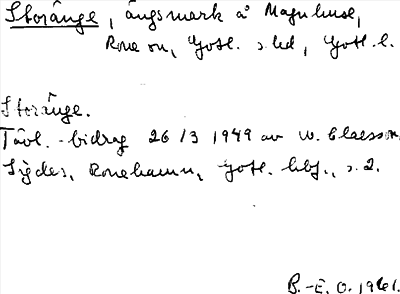 Storänge, ängsmark å Magnhuse,
Rone sn, Gotl. s. hd, Gotl. l.
Storänge.
Tävl.-bidrag 26/3 1949 av W. Claesson,
Sigdes, Ronehamn, Gotl. hbf., s. 2.
B.-E. O. 1961.